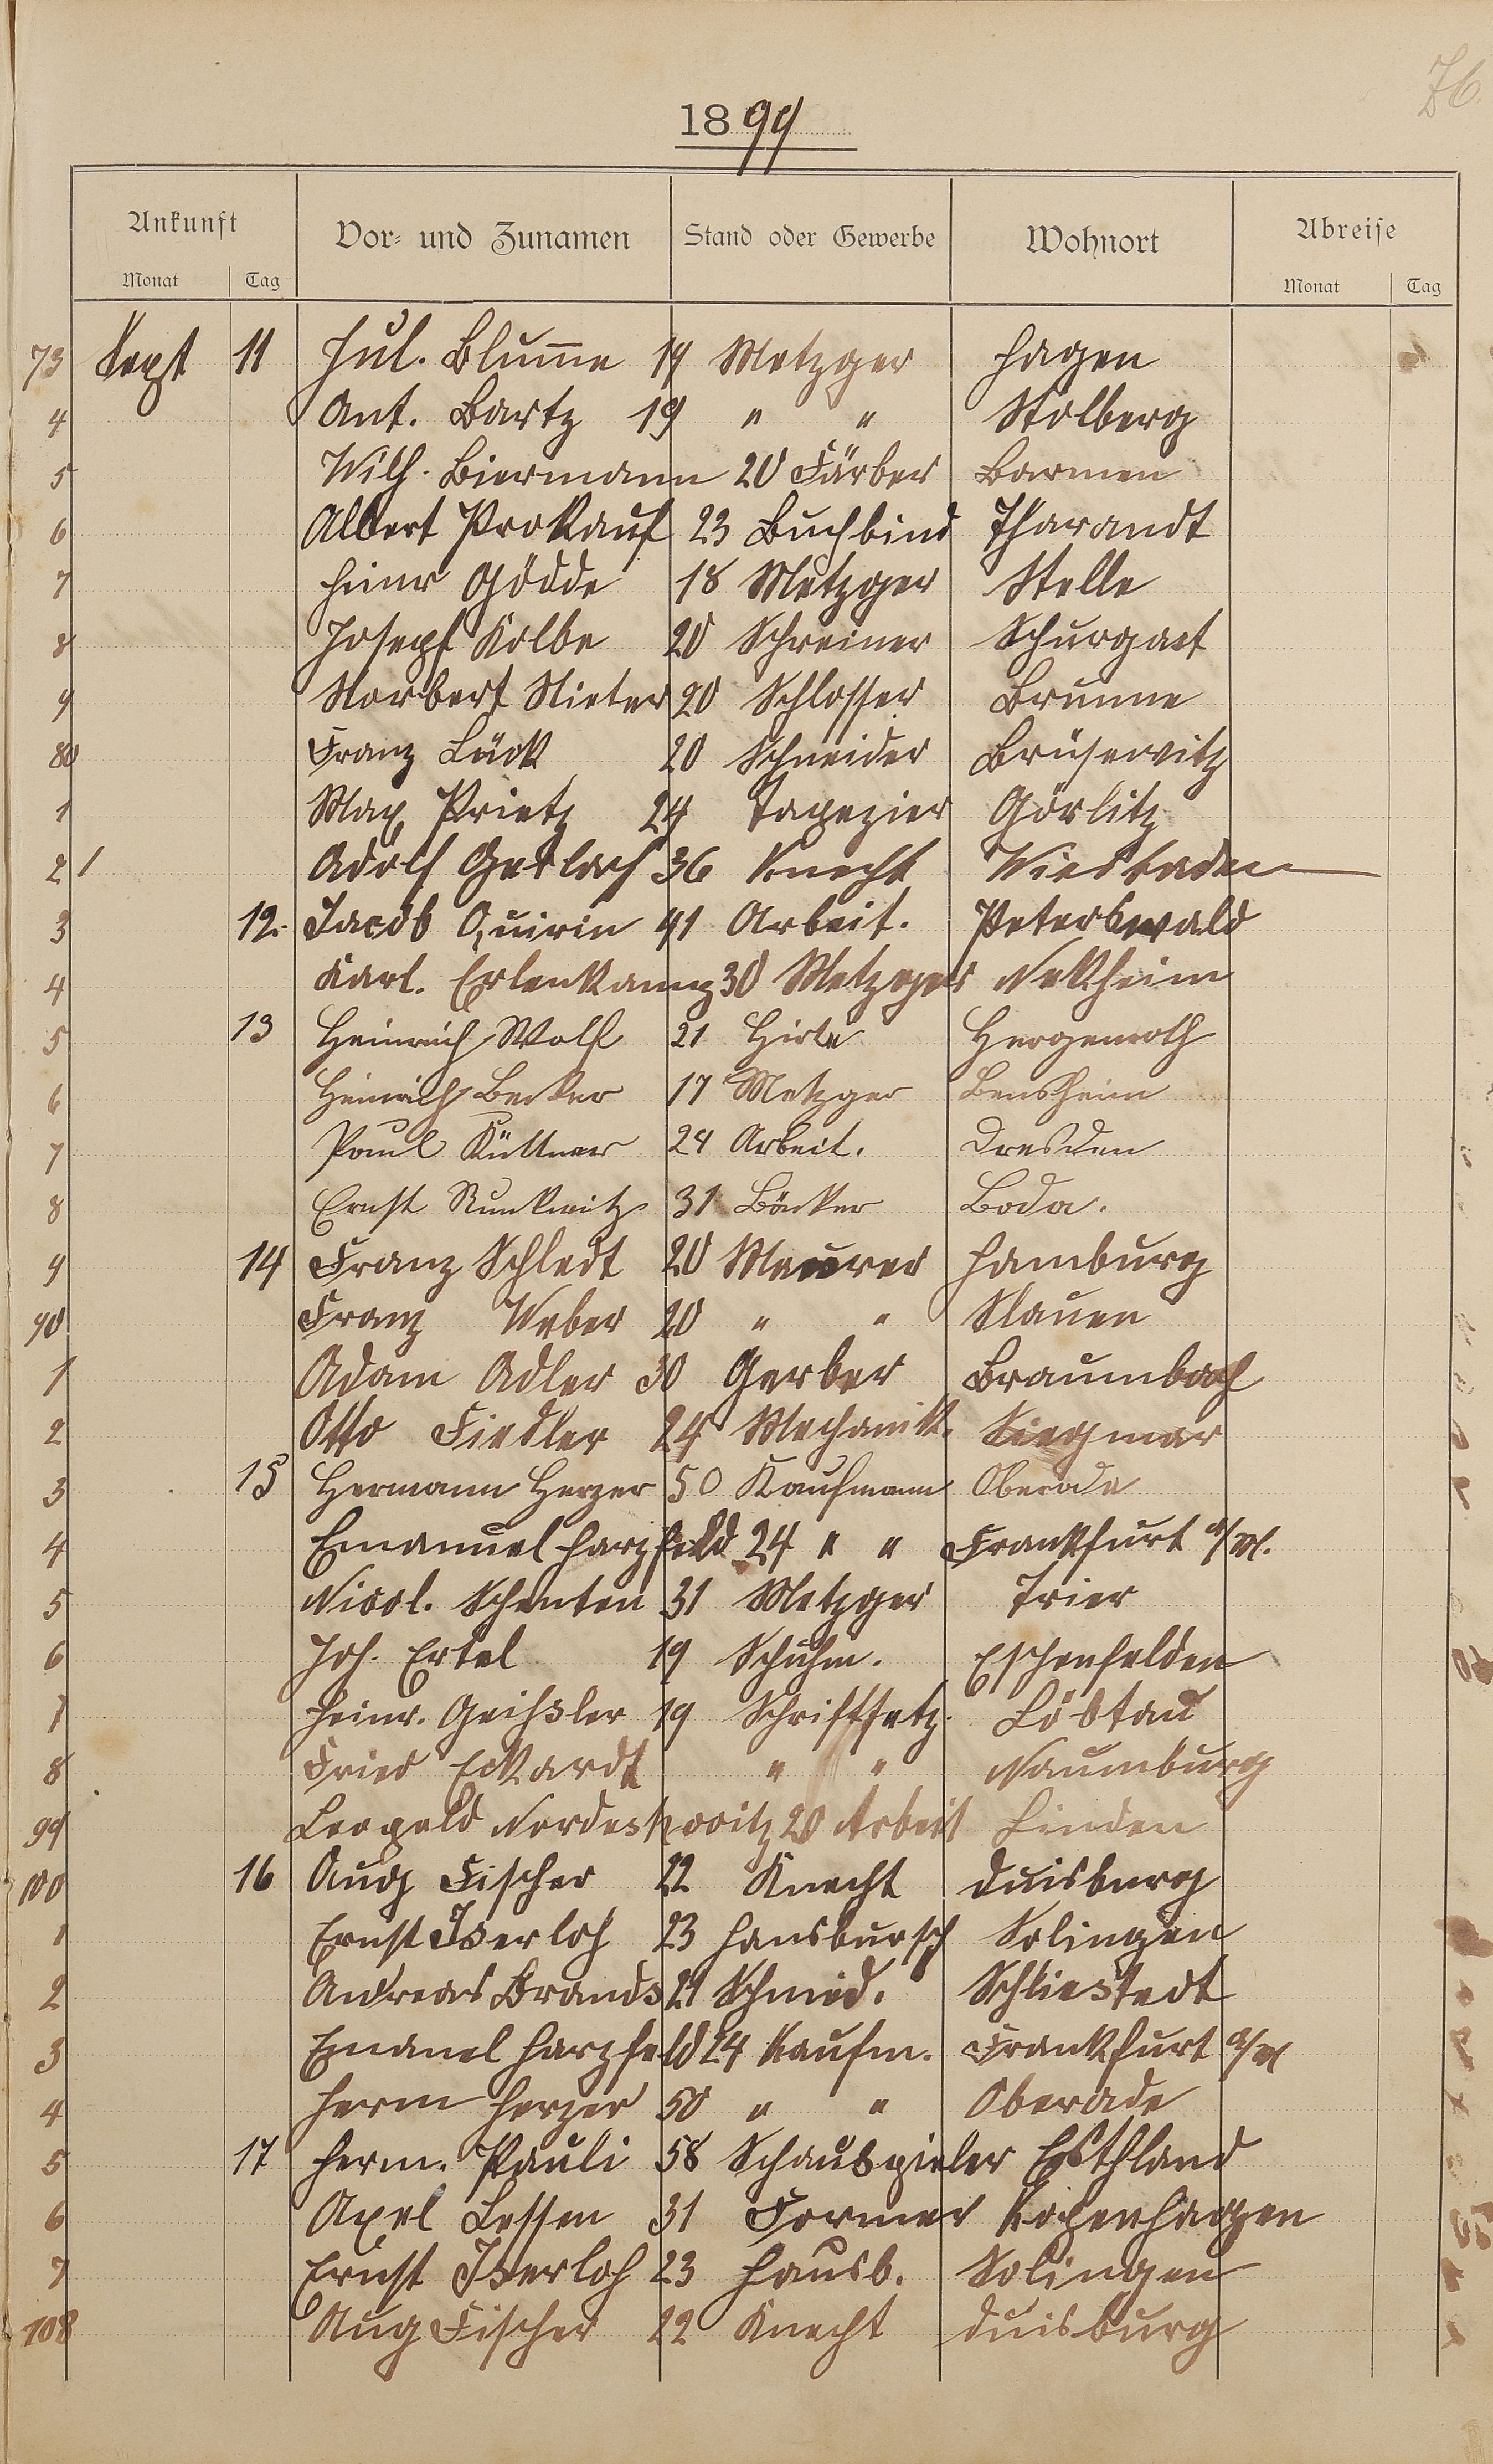 76
1899
Ankunft Vor- und Zunamen Stand oder Gewerbe Wohnort Abreise
Monat Tag Monat Tag
73 Sept 11 Jul. Blume 19 Metzger Hagen
4 Ant. Bartz 19 " " Stolberg
5 Wilh. Biermann 20 Färber Barmen
6 Albert Prokauf 23 Buchbind Tharandt
7 Heinr Gödde 18 Metzger Stelle
8 Joseph Kolbe 20 Schreiner Schurgast
9 Norbert Nieter 20 Schlosser Brunne
80 Franz Lück 20 Schneider Brüsewitz
1 Max Prietz 24 Tapezier Görlitz
2 / Adolf Gerlach 36 Knecht Wiesbaden
3 12. Jacob Quirin 41 Arbeit. Peterswald
4 Karl. Erlenkamp 30 Metzger
5 13 Heinrich Wolf 21 Hirte Hergenroth
6 Heinrich Becker 17 Metzger Bensheim
7 Paul Küttner 24 Arbeit. Dresden
8 Ernst Runkwitz 31 Bäcker Boda.
9 14 Franz Schledt 20 Maurer Hamburg
90 Franz Weber 20 " "
1 Adam Adler 30 Gerber Braumbach
2 Otto Fiedler 24 Mechanik. Siegmar
3 15 Hermann Herzer 50 Kaufmann Oberode
4 Emanuel Harzfeld 24 " " Frankfurt a/M.
5 Nicol. Schenten 31 Metzger Trier
6 Joh. Ertel 19 Schuhm. Eschenfelden
7 Heinr. Geissler 19 Schriftsetz. Löbtau
8 Fried Eckardt " " Naumburg
99 Leopold 20 Arbeit Linden
100 16 Aug Fischer 22 Knecht Duisburg
1 Ernst Iserloh 23 Hausbursch Solingen
2 Andreas Brands 21 Schmid. Schliestedt
3 Emanel Harzfeld 24 Kaufm. Frankfurt a/M
4 Herm Herzer 50 " " Oberade
5 17 Herm. Pauli 58 Schauspieler Esthland
6 Axel Lessen 31 Former Kopenhagen
7 Ernst Iserloh 23 Hausb. Solingen
108 Aug Fischer 22 Knecht Duisburg